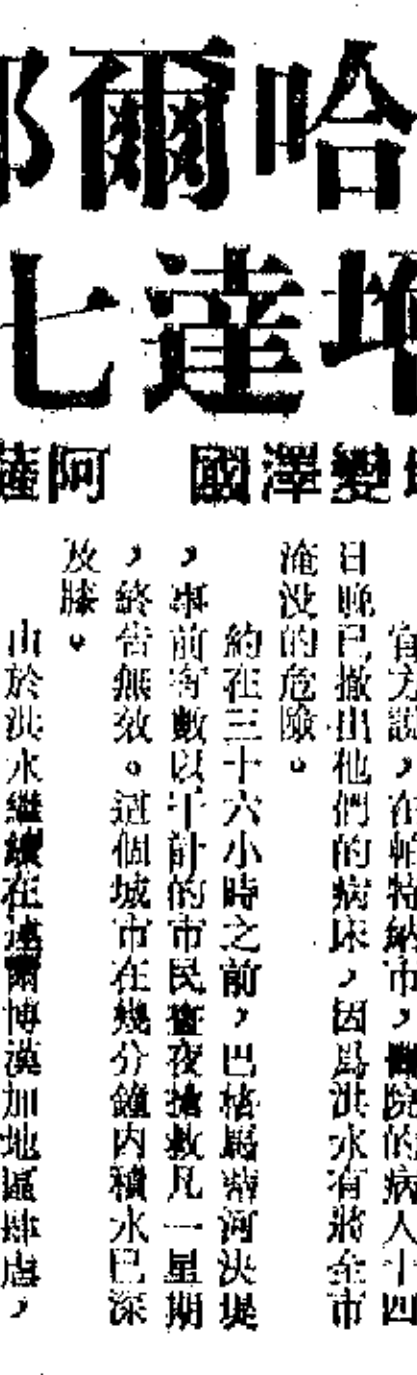 哈爾
達七
變澤國 阿薩
官方說，在帕特納市，醫院的病人十四
日晚已撤出他們的病床，因爲洪水有將全市
淹沒的危險。
約在三十六小時之前，巴格馬蒂河決堤
，事前有數以千計的市民晝夜搶救凡一星期
，終告無效。這個城市在幾分鐘內積水已深
及膝。
由於洪水繼續在達爾博漢加地區肆虐，